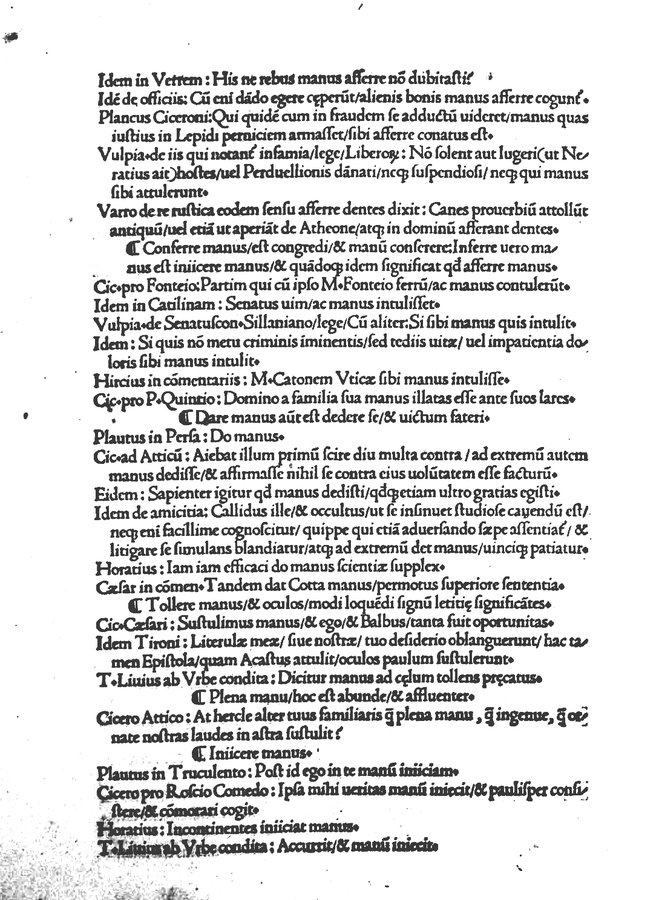 Idem in Verrem : His ne rebus manus afferre nō dubitasti?
Idē de officiis: Cū eni dādo egere cęperūt/alienis bonis manus afferre cogunt᷑.
Plancus Ciceroni:Qui quidē cum in fraudem se adductū uideret/manus quas
iustius in Lepidi perniciem armasset/sibi afferre conatus est.
Vulpia.de iis qui notant᷑ infamia/lege/Liberoꝝ : Nō solent aut lugeri(ut Ne⸗
ratius ait)hostes/uel Perduellionis dānati/neqꝫ suspendiosi/ neqꝫ qui manus
sibi attulerunt.
Varro de re rustica eodem sensu afferre dentes dixit : Canes prouerbiū attollūt
antiquū/uel etiā ut aperiāt de Atheone/atqꝫ in dominū afferant dentes.
¶ Conferre manus/est congredi/& manū conserere:Inferre uero ma⸗
nus est iniicere manus/& quādoqꝫ idem significat qđ afferre manus.
Cic.pro Fonteio:Partim qui cū ipso M.Fonteio ferrū/ac manus contulerūt.
Idem in Catilinam : Senatus uim/ac manus intulisset.
Vulpia.de Senatuscon.Sillaniano/lege/Cū aliter:Si sibi manus quis intulit.
Idem : Si quis nō metu criminis iminentis/sed tediis uitæ/ uel impatientia do⸗
loris sibi manus intulit.
Hircius in cōmentariis : M.Catonem Vticæ sibi manus intulisse.
Cic.pro P.Quintio : Domino a familia sua manus illatas esse ante suos lares.
¶ Dare manus aūt est dedere se/& uictum fateri.
Plautus in Persa : Do manus.
Cic.ad Atticū : Aiebat illum primū scire diu multa contra / ad extremū autem
manus dedisse/& affirmasse nihil se contra eius uolūtatem esse facturū.
Eidem : Sapienter igitur qđ manus dedisti/qđqꝫ etiam ultro gratias egisti.
Idem de amicitia: Callidus ille/& occultus/ut se insinuet studiose cauendū est/
neqꝫ eni facillime cognoscitur/ quippe qui etiā aduersando sæpe assentiat᷑ / &
litigare se simulans blandiatur/atqꝫ ad extremū det manus/uinciqꝫ patiatur.
Horatius : Iam iam efficaci do manus scientiæ supplex.
Cæsar in cōmen.Tandem dat Cotta manus/permotus superiore sententia.
¶ Tollere manus/& oculos/modi loquēdi signū letitię significātes.
Cic.Cæsari : Sustulimus manus/& ego/& Balbus/tanta fuit oportunitas.
Idem Tironi : Literulæ meæ/ siue nostræ/ tuo desiderio oblanguerunt/ hac ta⸗
men Epistola/quam Acastus attulit/oculos paulum sustulerunt.
T.Liuius ab Vrbe condita : Dicitur manus ad cęlum tollens pręcatus.
¶ Plena manu/hoc est abunde/& affluenter.
Cicero Attico : At hercle alter tuus familiaris q̄ plena manu , q̄ ingenue, q̄ or⸗
nate nostras laudes in astra sustulit?
¶ Iniicere manus.
Plautus in Truculento : Post id ego in te manū iniiciam.
Cicero pro Roscio Comedo : Ipsa mihi ueritas manū iniecit/& paulisper consi⸗
stere/& cōmorari cogit.
Horatius : Incontinentes iniiciat manus.
T.Liuius ab Vrbe condita : Accurrit/& manū iniecit.